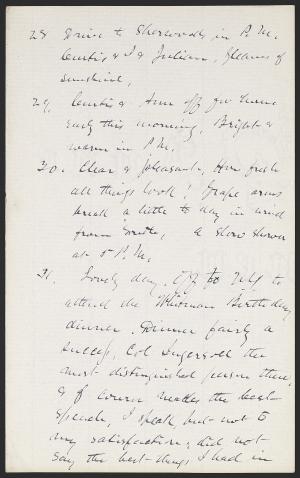 28 Drive to Sherwoods in P.M.
Curtis & I & Julian, Gleams of
sunshine.
29. Curtis & Ann off for home
early this morning. Bright &
warm in P.M.
30. Clear & pleasant. How fresh
all things look! Grape arms
break a little to day in wind
from South, a slow shower
at 5 P.M.
31. Lovely day. Off to N.Y. to
attend the Whitman Birthday
dinner. Dinner fairly a
success, Col Ingersoll the
most distinguished person there,
& of course makes the best
speech, I speak, but not to
my satisfaction; did not
say the best things I had in